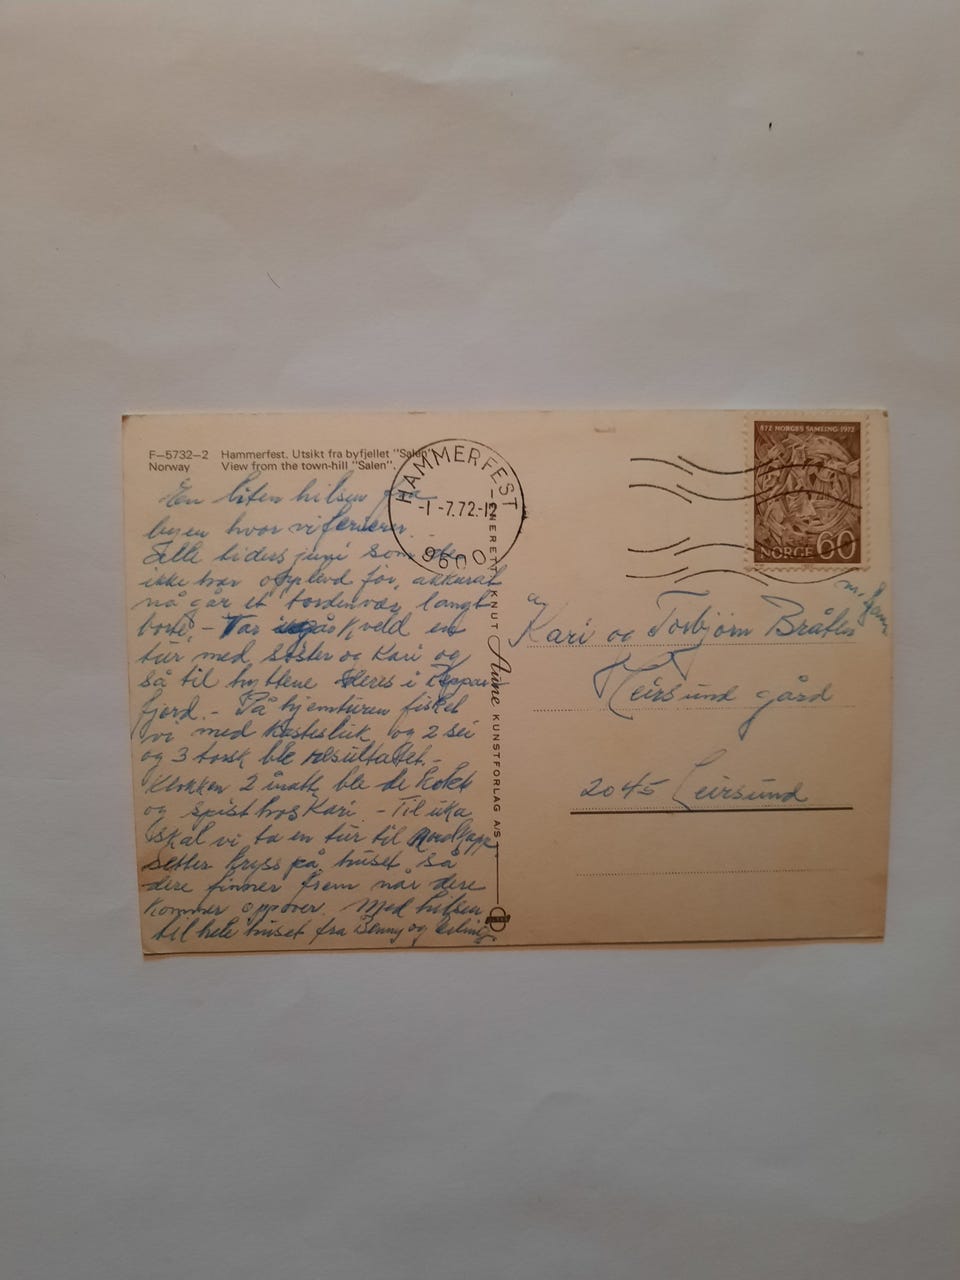 F—5732—2 Hammerfest. Utsikt fra byfjellet "Salen".
Norway View from the town-hill "Salen".
En liten hilsen fra
byen hvor vi ferierer.
Alle tiders juni som de
ikke har opplevd før, akkurat
nå går et tordenvær langt
borte. - Var igår kveld en
tur med søster og Kari og
så til hyttene deres i Reppar
fjord. - På hjemturen fisket
vi med kastesluk og 2 sei
og 3 torsk ble resultatet. -
Klokken 2 inatt ble de kokt
og spist hos Kari. - Til uka
skal vi ta en tur til Nordkapp
setter kryss på huset så
dere finner frem når dere
kommer oppover. Med hilsen
til hele huset fra Benny og
HAMMERFEST
-1-7.72-12
9600
ENERETT KNUT Aune KUNSTFORLAG A/S
872 NORGES SAMLING 1972
NORGE 60
m. fam.
Kari og Torbjørn Bråten
Leirsund gård
2045 Leirsund